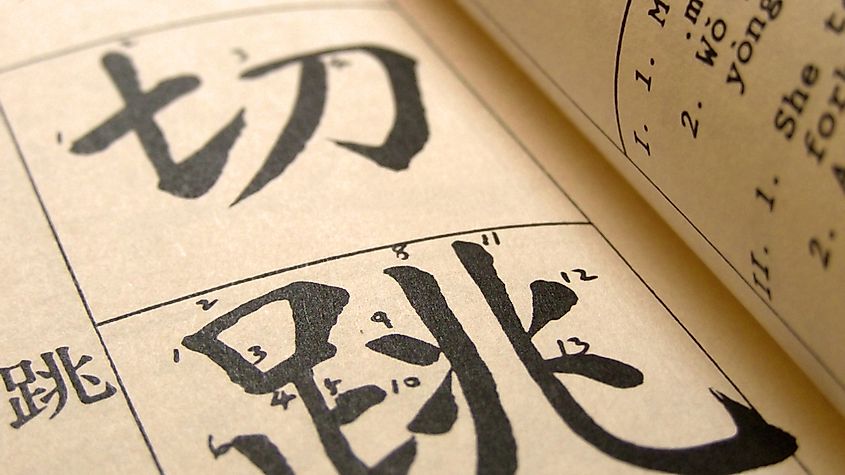 切
1 2 3 4
跳
1 2 3 4 5 6 8 9 10 11 12 13
跳
I. 1.
2. Wǒ
yòng
II. 1. She
2.